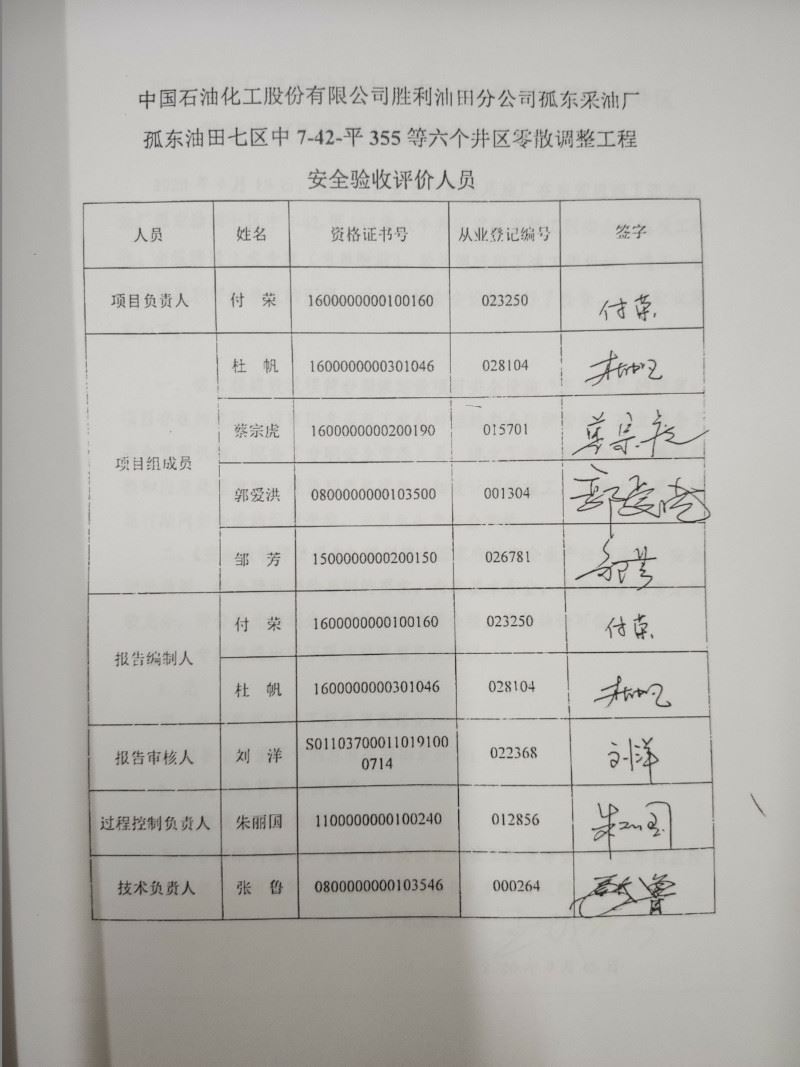 中国石油化工股份有限公司胜利油田分公司孤东采油厂
孤东油田七区中 7-42-平 355 等六个井区零散调整工程
安全验收评价人员
人员 姓名 资格证书号 从业登记编号 签字
项目负责人 付 荣 1600000000100160 023250 付荣
项目组成员 杜 帆 1600000000301046 028104 杜帆
蔡宗虎 1600000000200190 015701 蔡宗虎
郭爱洪 0800000000103500 001304 郭爱洪
邹 芳 1500000000200150 026781 邹芳
报告编制人 付 荣 1600000000100160 023250 付荣
杜 帆 1600000000301046 028104 杜帆
报告审核人 刘 洋 S01103700011019100 022368 刘洋
0714
过程控制负责人 朱丽国 1100000000100240 012856 朱丽国
技术负责人 张 鲁 0800000000103546 000264 张鲁